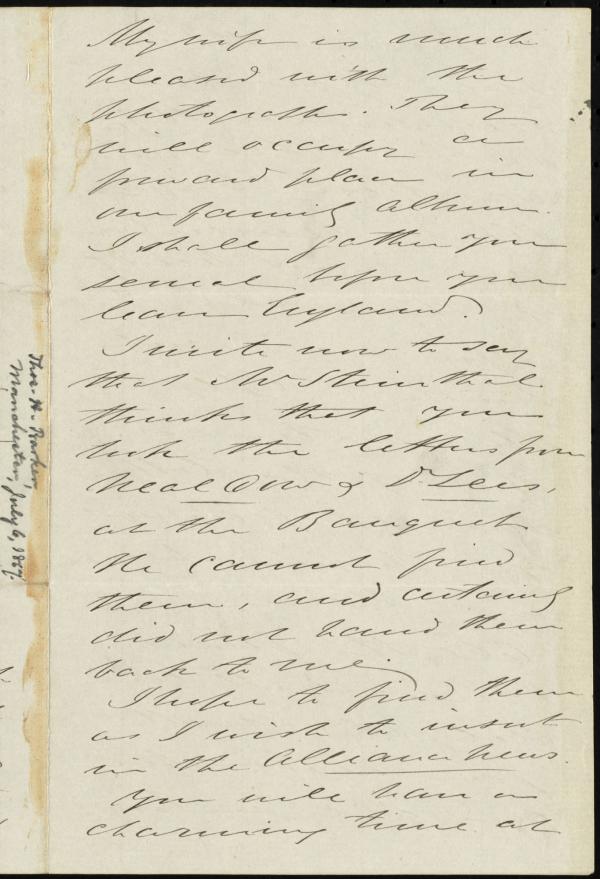 My wife is much
pleased with the
photographs. They
will occupy a
forward place in
our family album.
I shall gather you
several before you
leave England.
I write now to say
that Mr Steinthal
thinks that you
took the letters from
Neal Dow & Dr Lees,
at the Banquet
He cannot find
them, and certainly
did not hand them
back to me.
I hope to find them
as I wish to insert
in the Alliance News.
You will have a
charming time at
Thos. H. Barker,
Manchester, July 6, 1867.